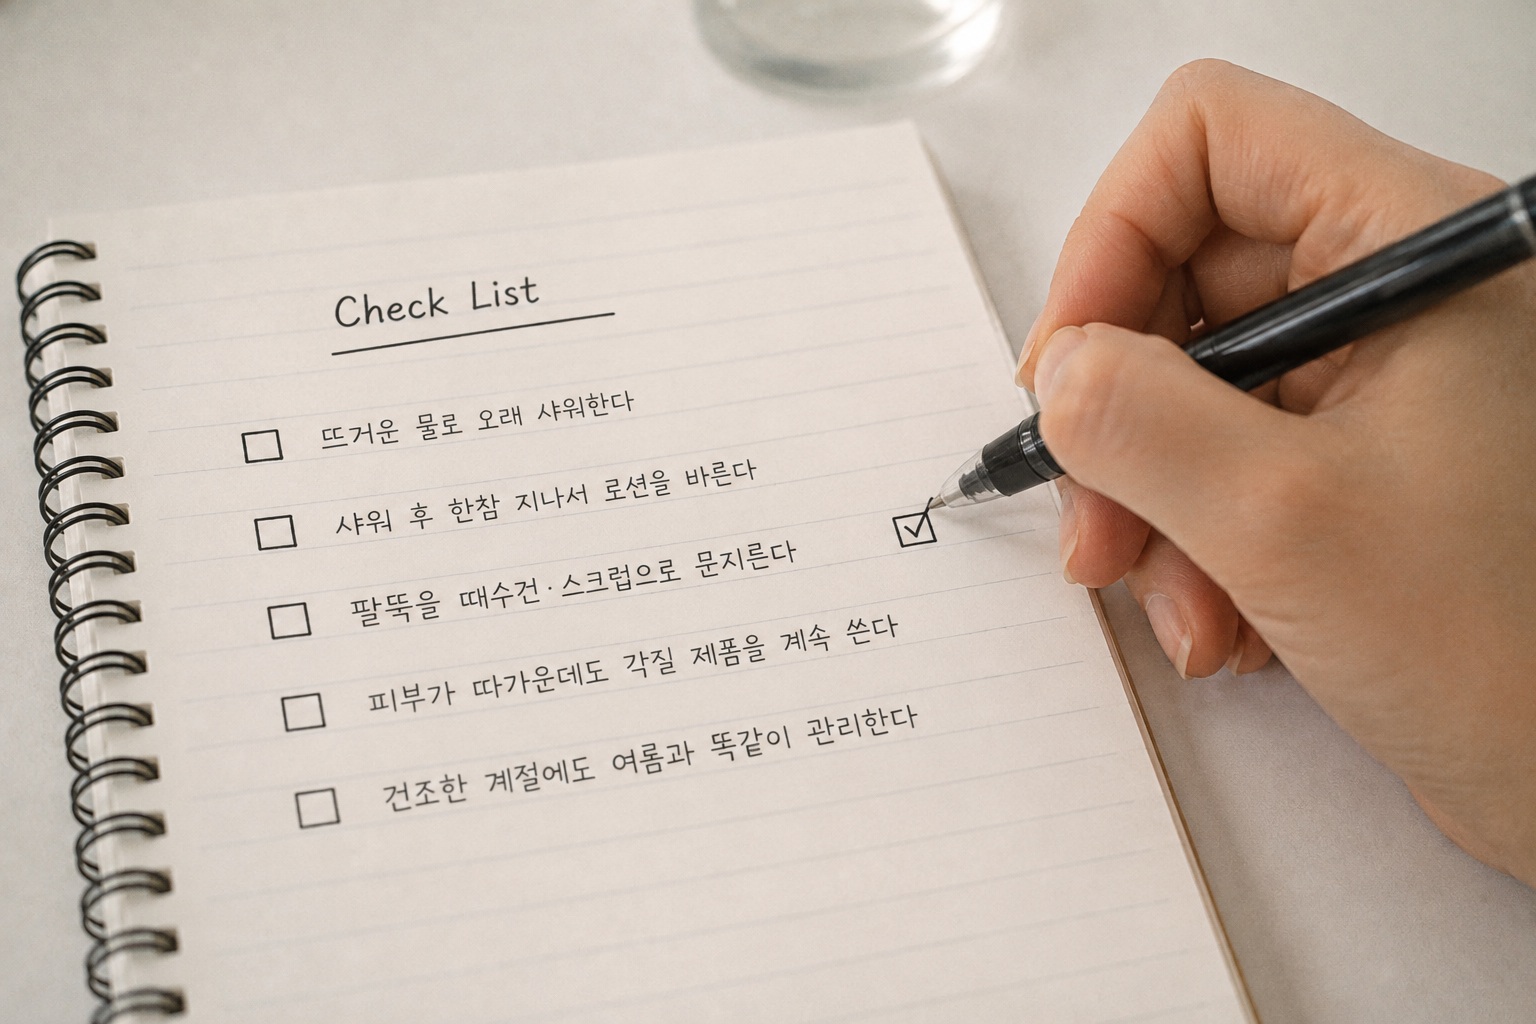 Check List
뜨거운 물로 오래 샤워한다
샤워 후 한참 지나서 로션을 바른다
팔뚝을 때수건·스크럽으로 문지른다
피부가 따가운데도 각질 제품을 계속 쓴다
건조한 계절에도 여름과 똑같이 관리한다